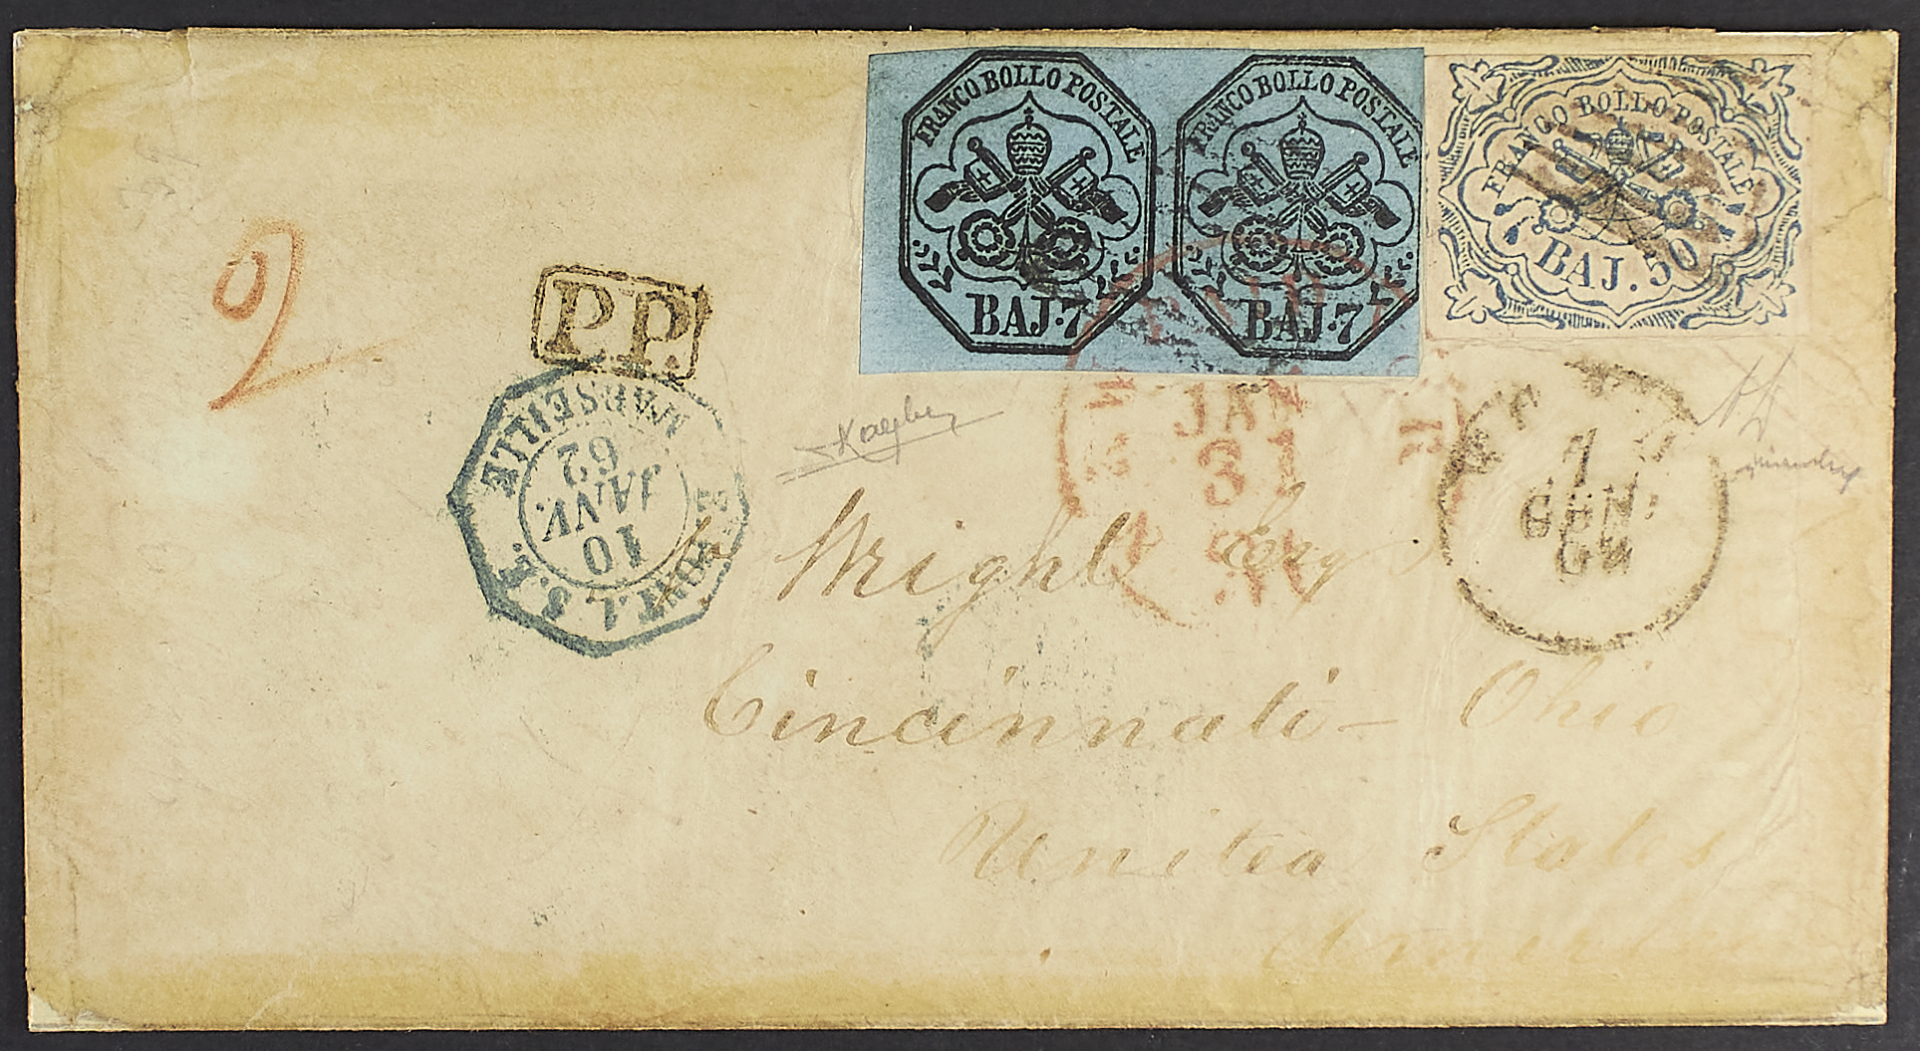 FRANCO BOLLO POSTALE
BAJ. 7
FRANCO BOLLO POSTALE
BAJ. 7
FRANCO BOLLO POSTALE
BAJ. 50
2
P.P.
MARSEILLE
10
JANV.
62
JAN
31
7
GEN:
62
Wright Esq
Cincinnati - Ohio
United States
America